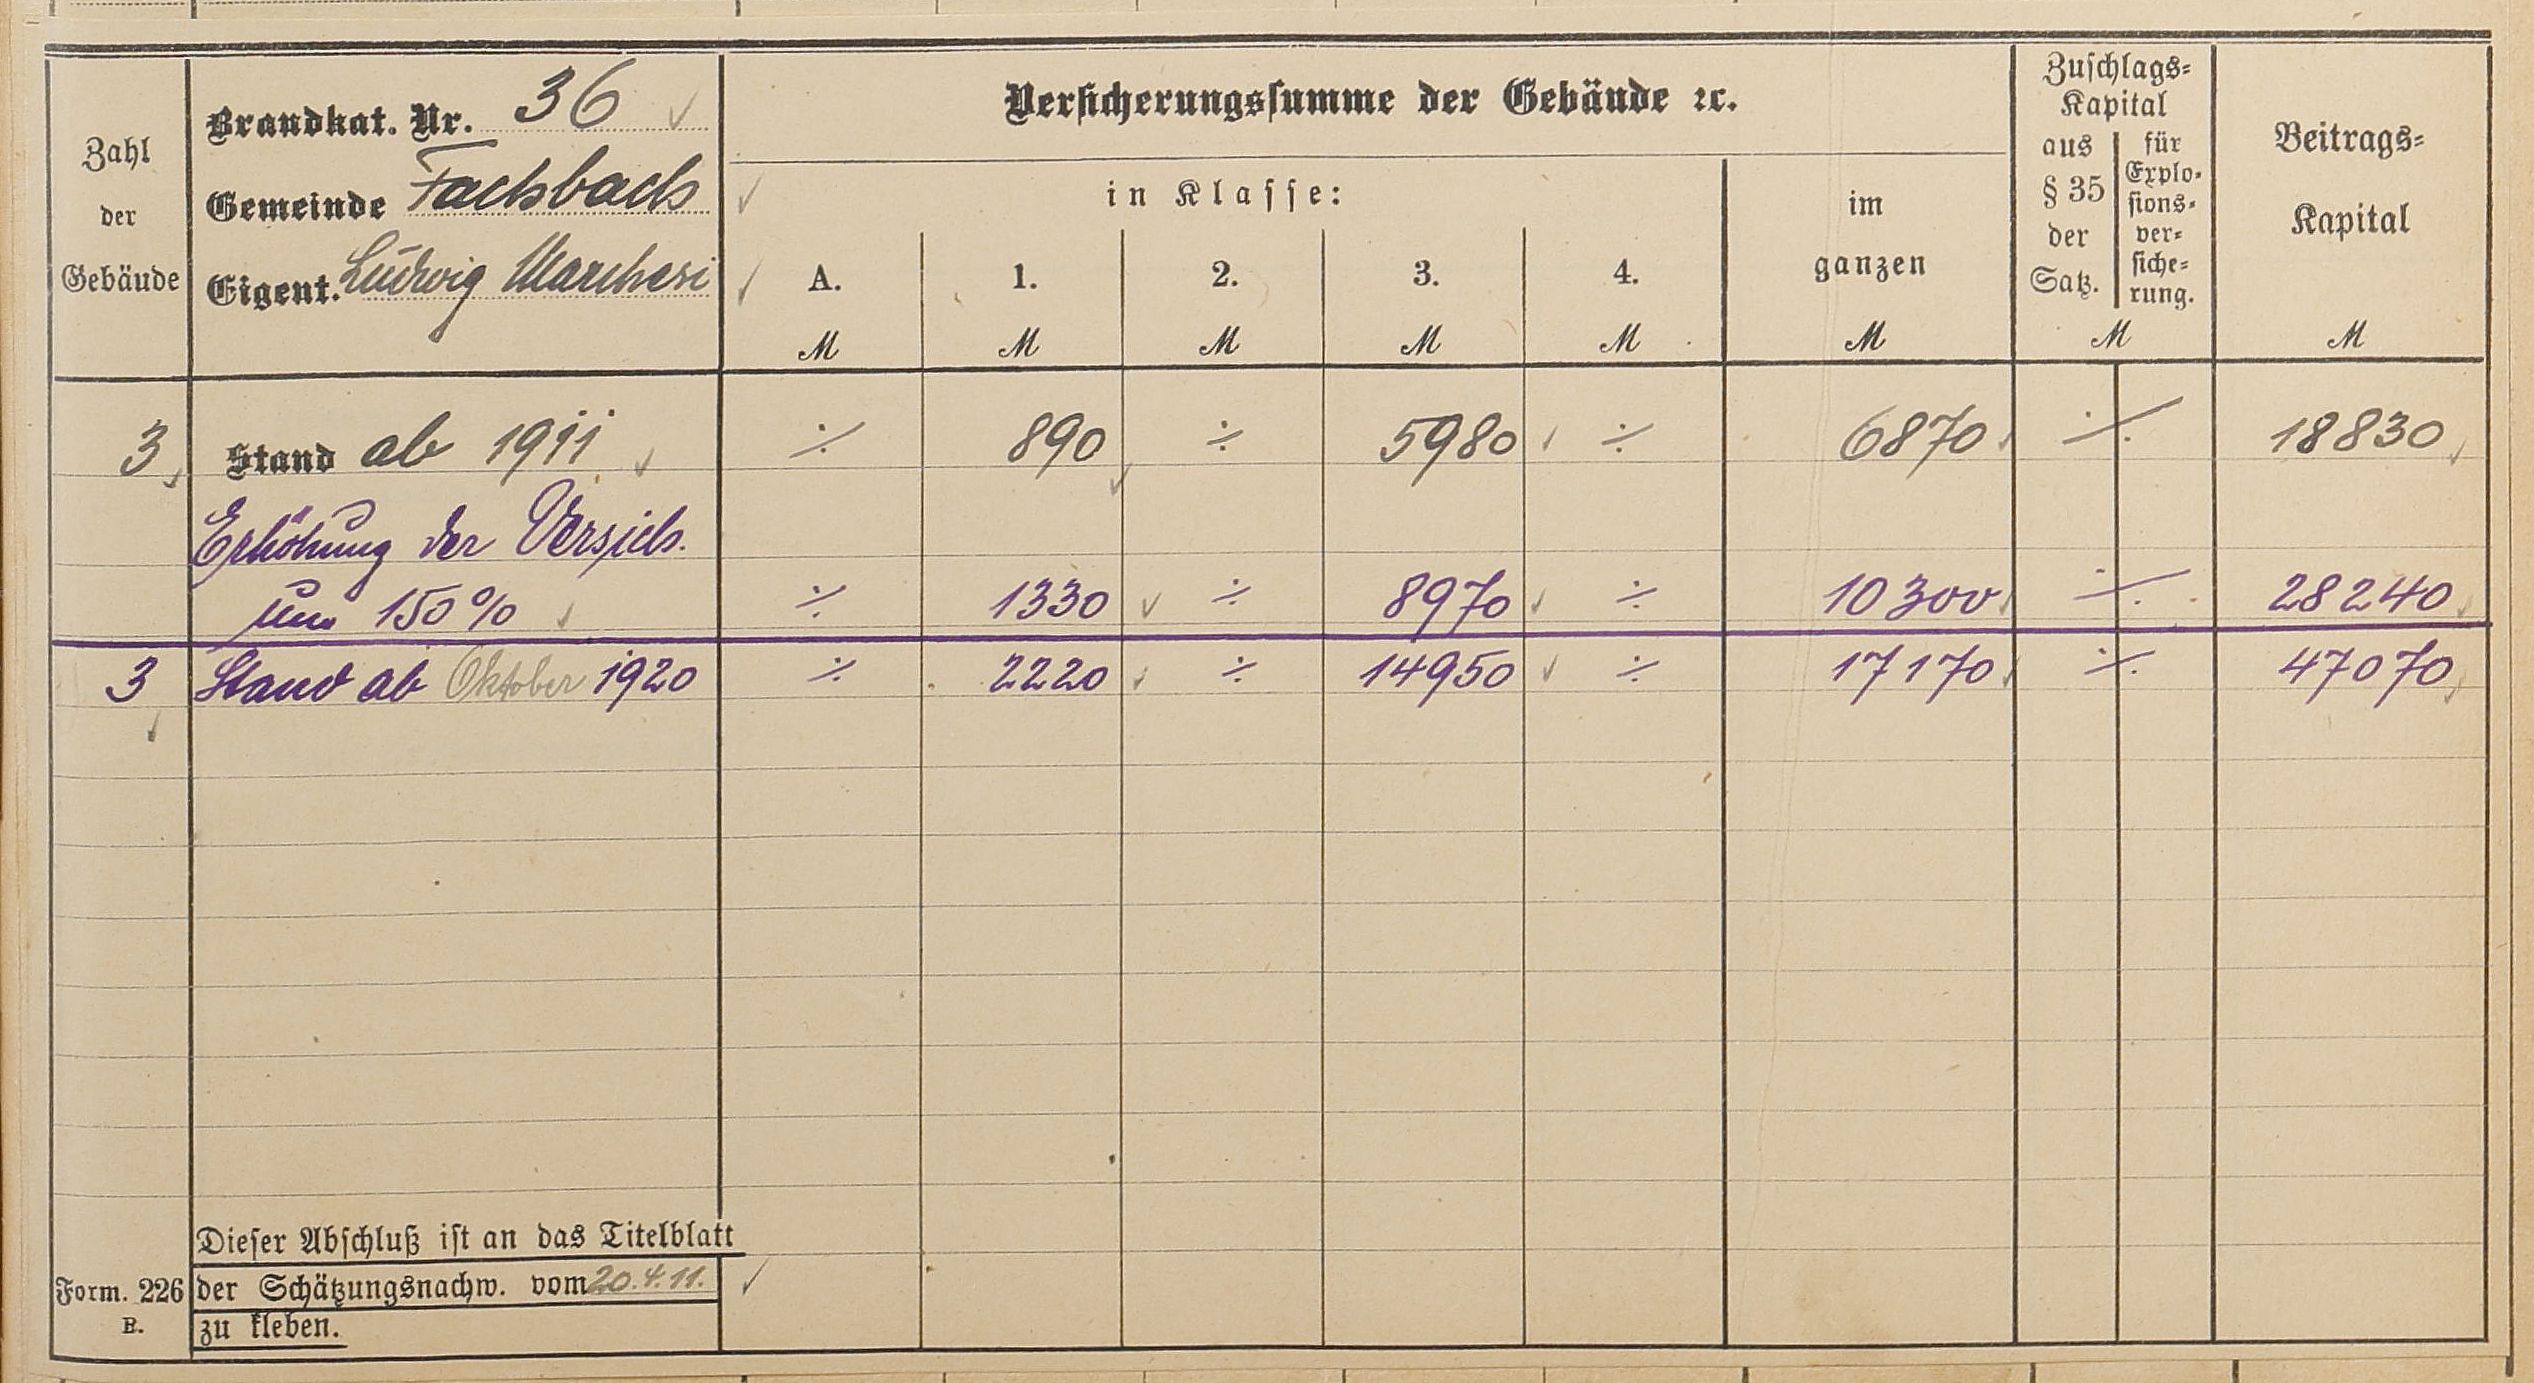 Zahl der Gebäude
Brandkat. Nr. 36
Gemeinde Fachsbach
Eigent. Ludwig Marchesi
Versicherungssumme der Gebäude ꝛc.
in Klasse:
A. 1. 2. 3. 4.
im ganzen
Zuschlags-Kapital
aus § 35 der Satz.
für Explo-sions-ver-siche-rung.
Beitrags-Kapital
M M M M M M M M
3 Stand ab 1911 ·/. 890 ·/. 5980 ·/. 6870 ·/. 18830
Erhöhung der Versich.
um 150% ·/. 1330 ·/. 8970 ·/. 10300 ·/. 28240
3 Stand ab Oktober 1920 ·/. 2220 ·/. 14950 ·/. 17170 ·/. 47070
Dieser Abschluß ist an das Titelblatt
Form. 226 der Schätzungsnachw. vom 20.4.11.
B. zu kleben.